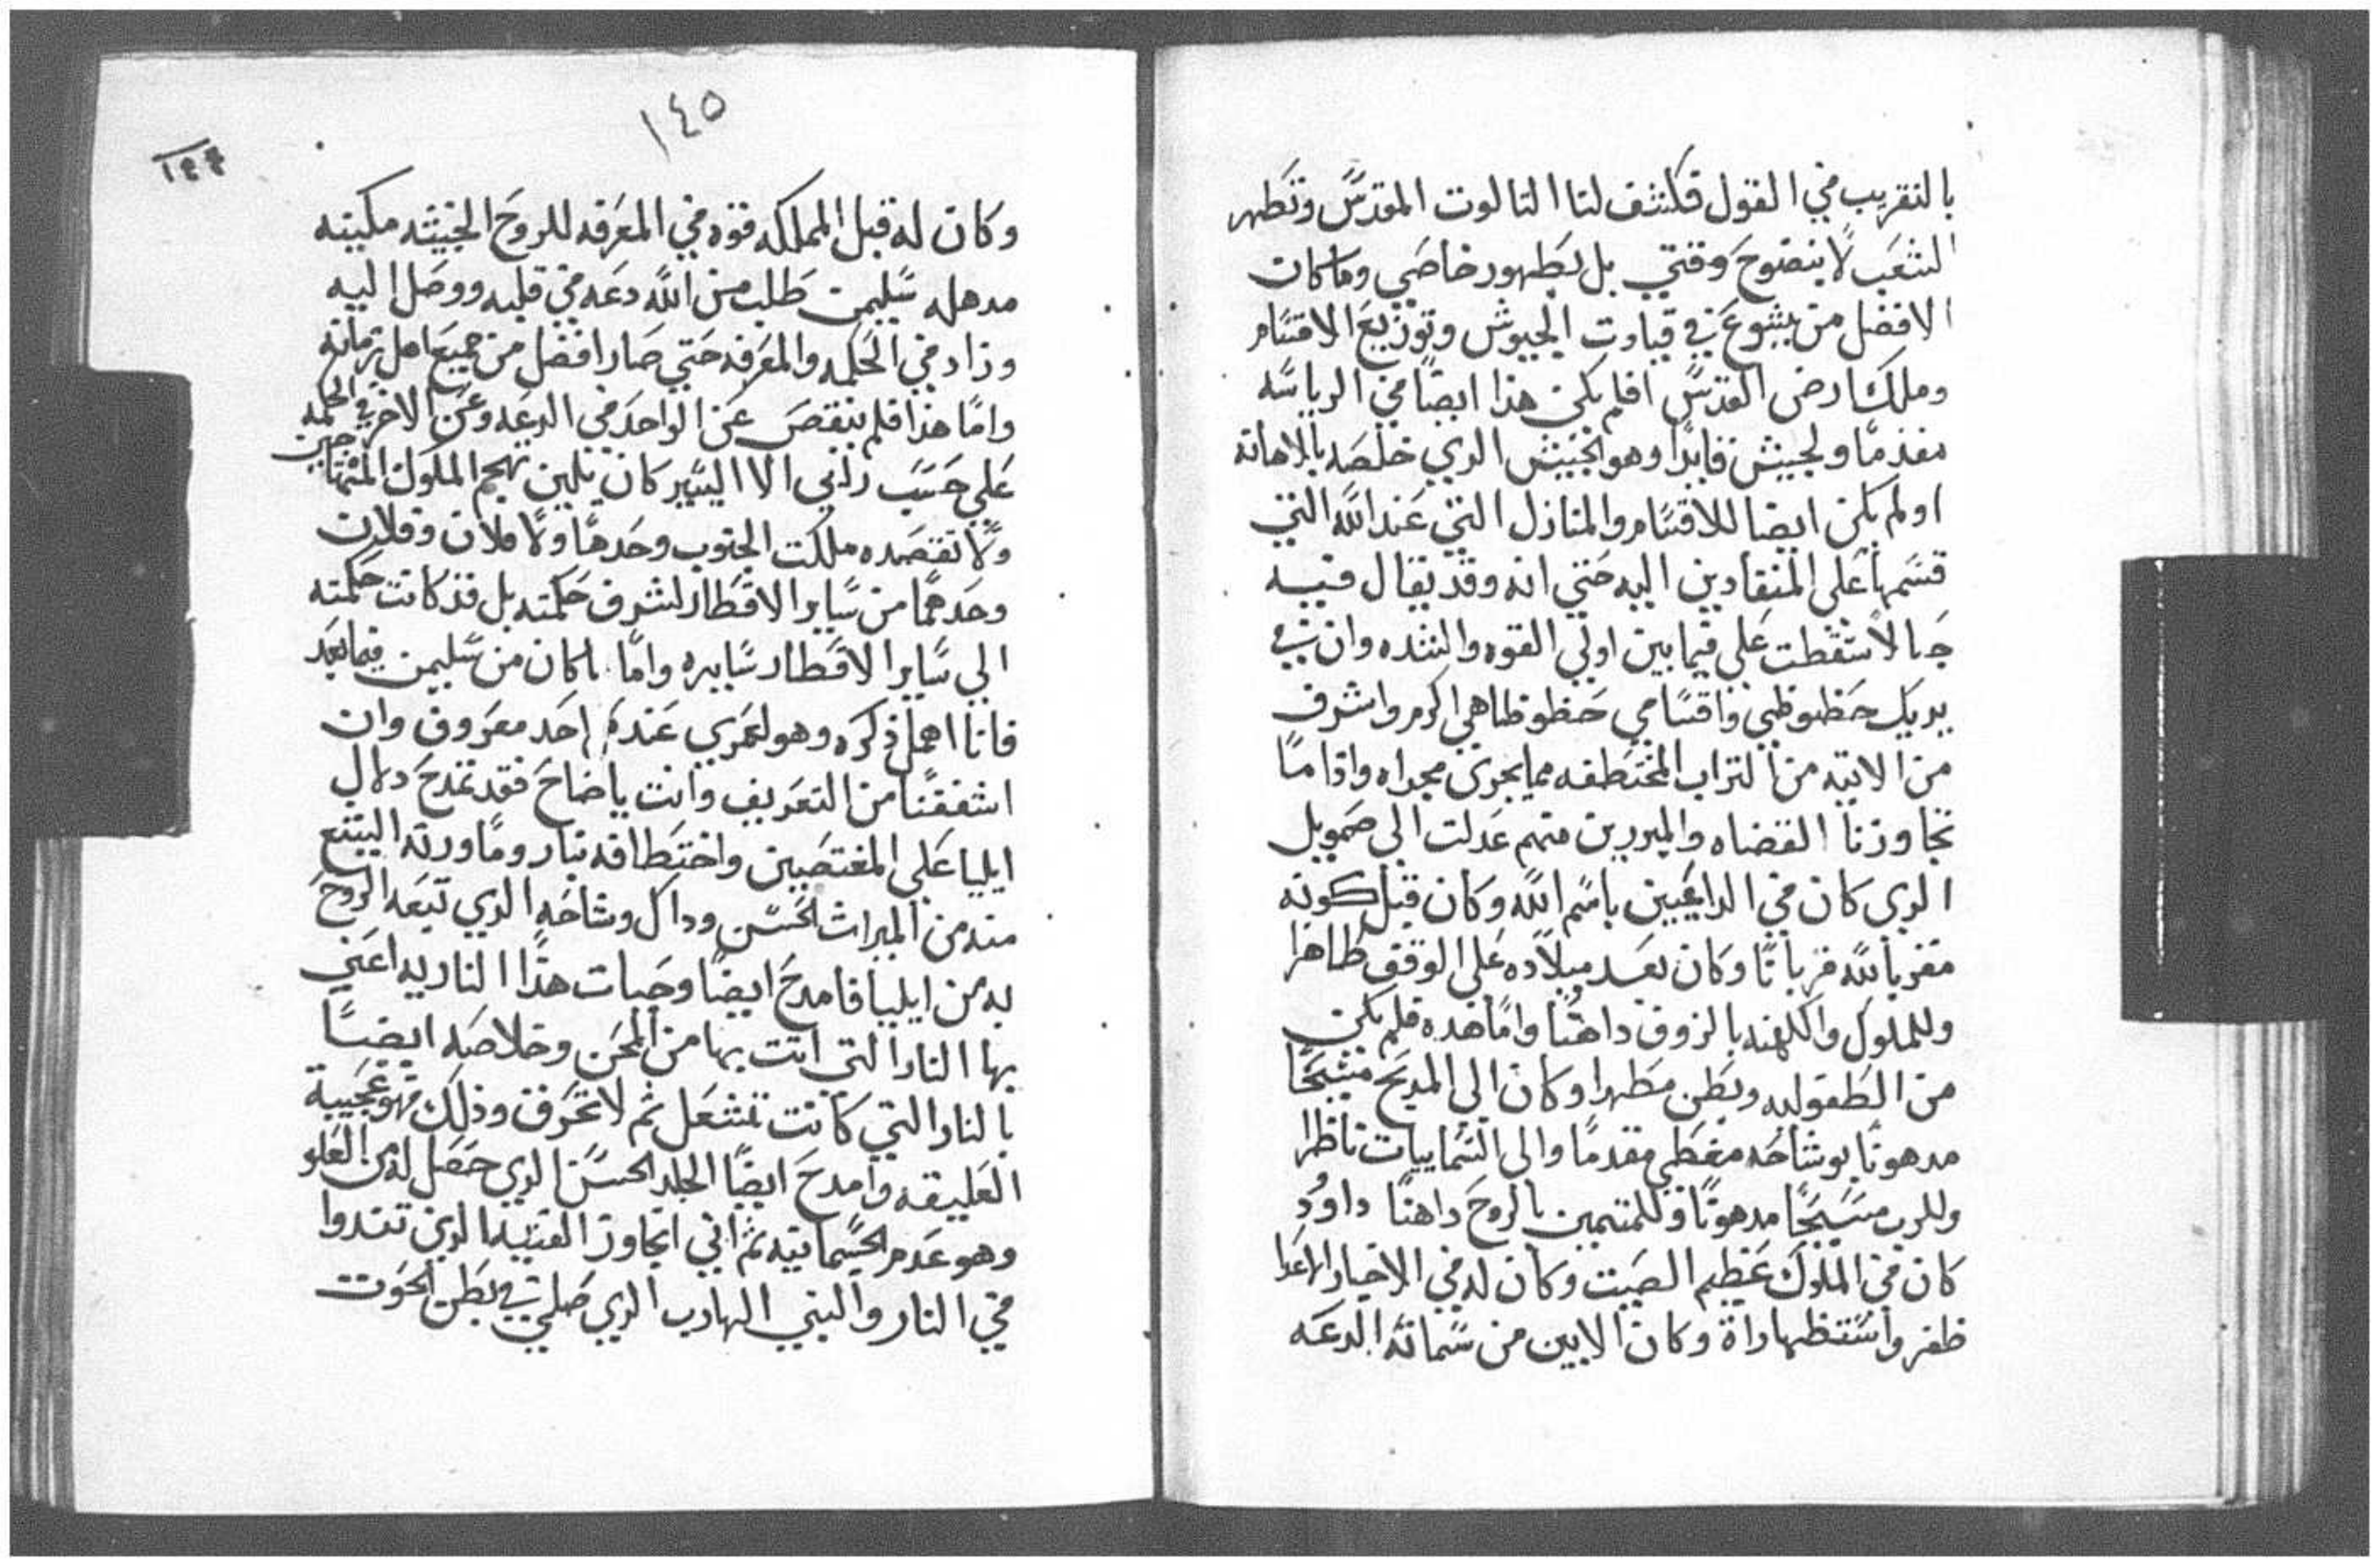 بالتقريب في القول فكشف لنا التالوت المقدس وتطهر
الشعب لا بنضوح وقتي بل بطهور خاصي وما كان
الافضل من يشوع في قيادت الجيوش وتوزيع الاقسام
وملك ارض القدس افلم يكن هذا ايضا في الرياسه
مقدما ولجيش قايدا وهو الجيش الدي خلصه بالامانه
اولم يكن ايضا للاقسام والمنازل التي عند الله التي
قسمها علي المنقادين اليه حتي انه وقد يقال فيه
حبالا سقطت علي فيما بين اولي القوه والشده وان في
يديك حظوظي واقسامي حظوظا هي اكرم واشرف
من الاتيه من التراب المختطفه مما يجري مجراه واذا ما
تجاوزنا القضاه والمبررين منهم عدلت الي صمويل
الدي كان في الداعيين باسم الله وكان قبل كونه
مقربا لله قربانا وكان بعد ميلاده علي الوقف طاهرا
وللملوك والكهنه بالزوق داهنا واما هده فلم يكن
من الطفوليه وبطن مطهرا وكان الي المديح متشحا
مدهونا بوشاحه مغطي مقدما والي السماييات ناظرا
وللرب مسبحا مدهونا وللمتممين بالروح داهنا داوود
كان في الملوك عظيم الصيت وكان له في الاخبار الاعدا
ظفر واستظهاراة وكان الابين من سماته الدعه
١٤٥
١٤٤
وكان له قبل المملكه قوه في المعرفه للروح الخبيثه مكينه
مدهله سليمن طلب من الله دعه في قلبه ووصل اليه
وزاد في الحكمه والمعرفه حتي صار افضل من جميع اهل زمانه
واما هذا فلم ينقص عن الواحد في الدعه وعن الاخر في الحكمه
علي حسب راني الا اليسير كان يلين تهجم الملوك المتهاجين
ولا تقصده ملكت الجنوب وحدها ولا فلان وفلان
وحدهما من ساير الاقطار لشرف حكمته بل قد كانت حكمته
الي ساير الاقطار سايره واما ما كان من سليمن فيما بعد
فانا اهمل ذكره وهو لعمري عند احد معروف وان
اشفقنا من التعريف وانت ياصاح فقد تمدح دلال
ايليا علي المغتصبين واختطافه بنار وما ورثه اليشع
منه من الميراث الحسن وداك وشاحه الدي تبعه الروح
به من ايليا فامدح ايضا وحيات هذا الناريه اعني
بها النار التي اتت بها من المحن وخلاصه ايضا
بالنار التي كانت تشتعل ثم لا تحرق وذلك فهو عجيبة
العليقه وامدح ايضا الجلد الحسن الدي حصل له من العلو
وهو عدم الجسمانيه ثم اني اتجاوز الفتيه الدين تندوا
في النار والنبي الهارب الدي صلي في بطن الحوت